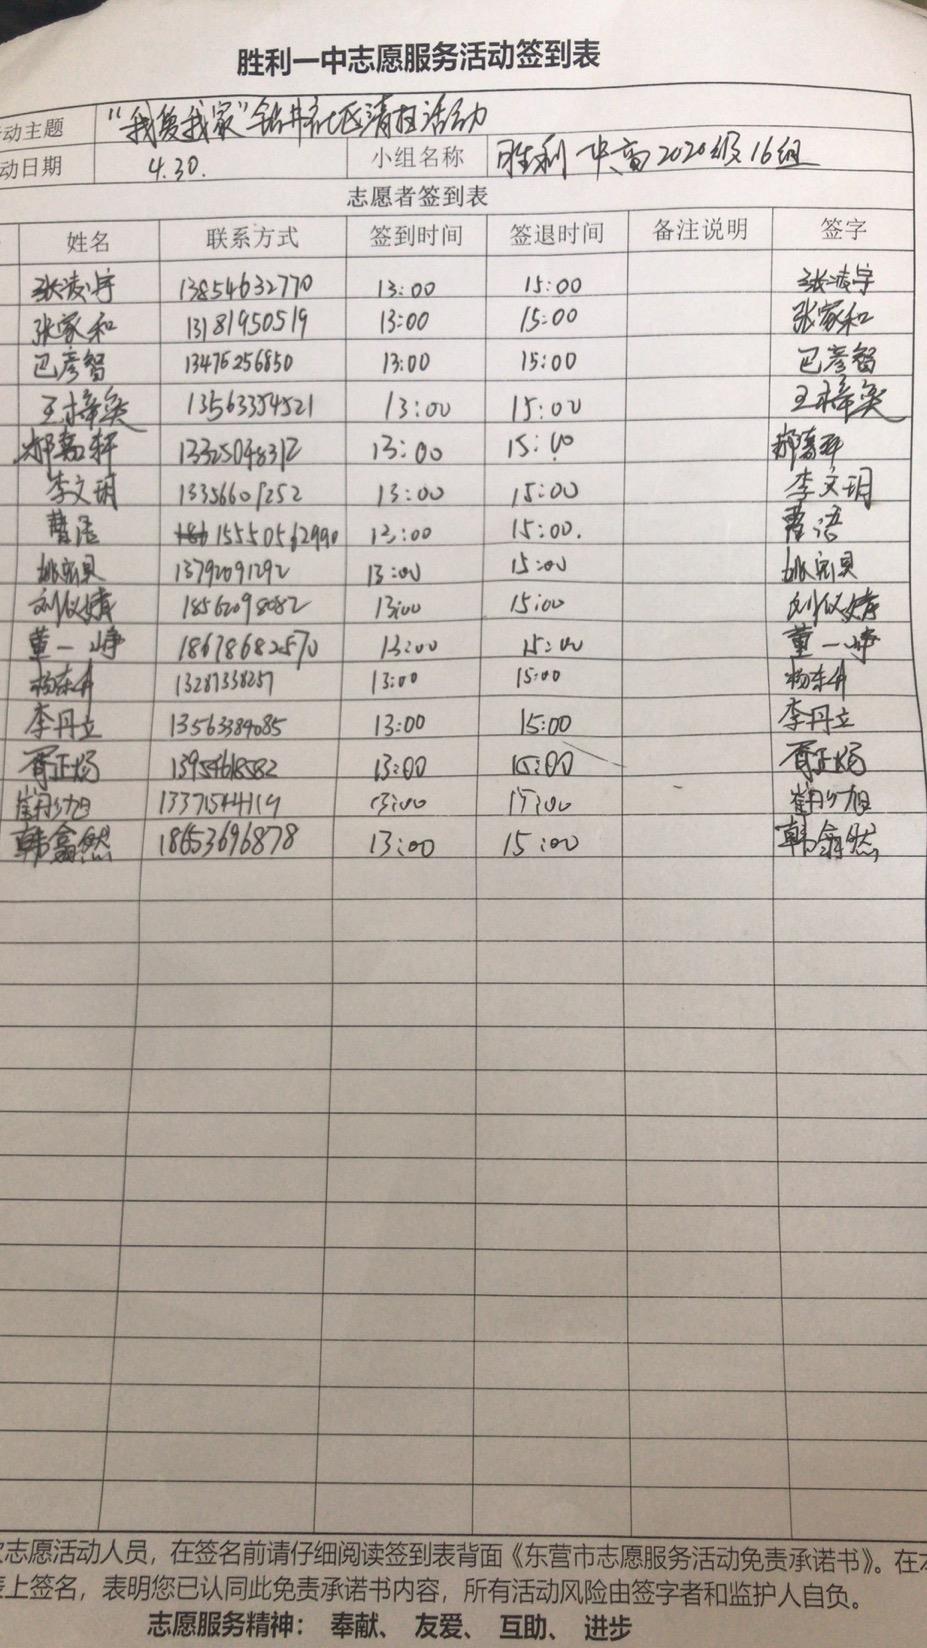 胜利一中志愿服务活动签到表
动主题 “我爱我家”钻井社区清扫活动
动日期 4.30. 小组名称 胜利一中高2020级16组
志愿者签到表
姓名 联系方式 签到时间 签退时间 备注说明 签字
张凌宇 13854632770 13:00 15:00 张凌宇
张家和 13181950519 13:00 15:00 张家和
巴彦智 13476256850 13:00 15:00 巴彦智
王梓奕 13563354521 13:00 15:00 王梓奕
郝嘉轩 13325048312 13:00 15:00 郝嘉轩
李文玥 13356609252 13:00 15:00 李文玥
曹语 15550562990 13:00 15:00. 曹语
姚宛贝 13792091292 13:00 15:00 姚宛贝
刘仪婧 18562098082 13:00 15:00 刘仪婧
董一峥 18678682570 13:00 15:00 董一峥
杨东升 13287338257 13:00 15:00 杨东升
李丹立 13563384085 13:00 15:00 李丹立
胥正杨 13954618582 13:00 15:00 胥正杨
13:00 15:00
韩翕然 18653696878 13:00 15:00 韩翕然
次志愿活动人员，在签名前请仔细阅读签到表背面《东营市志愿服务活动免责承诺书》。在本
表上签名，表明您已认同此免责承诺书内容，所有活动风险由签字者和监护人自负。
志愿服务精神： 奉献、 友爱、 互助、 进步